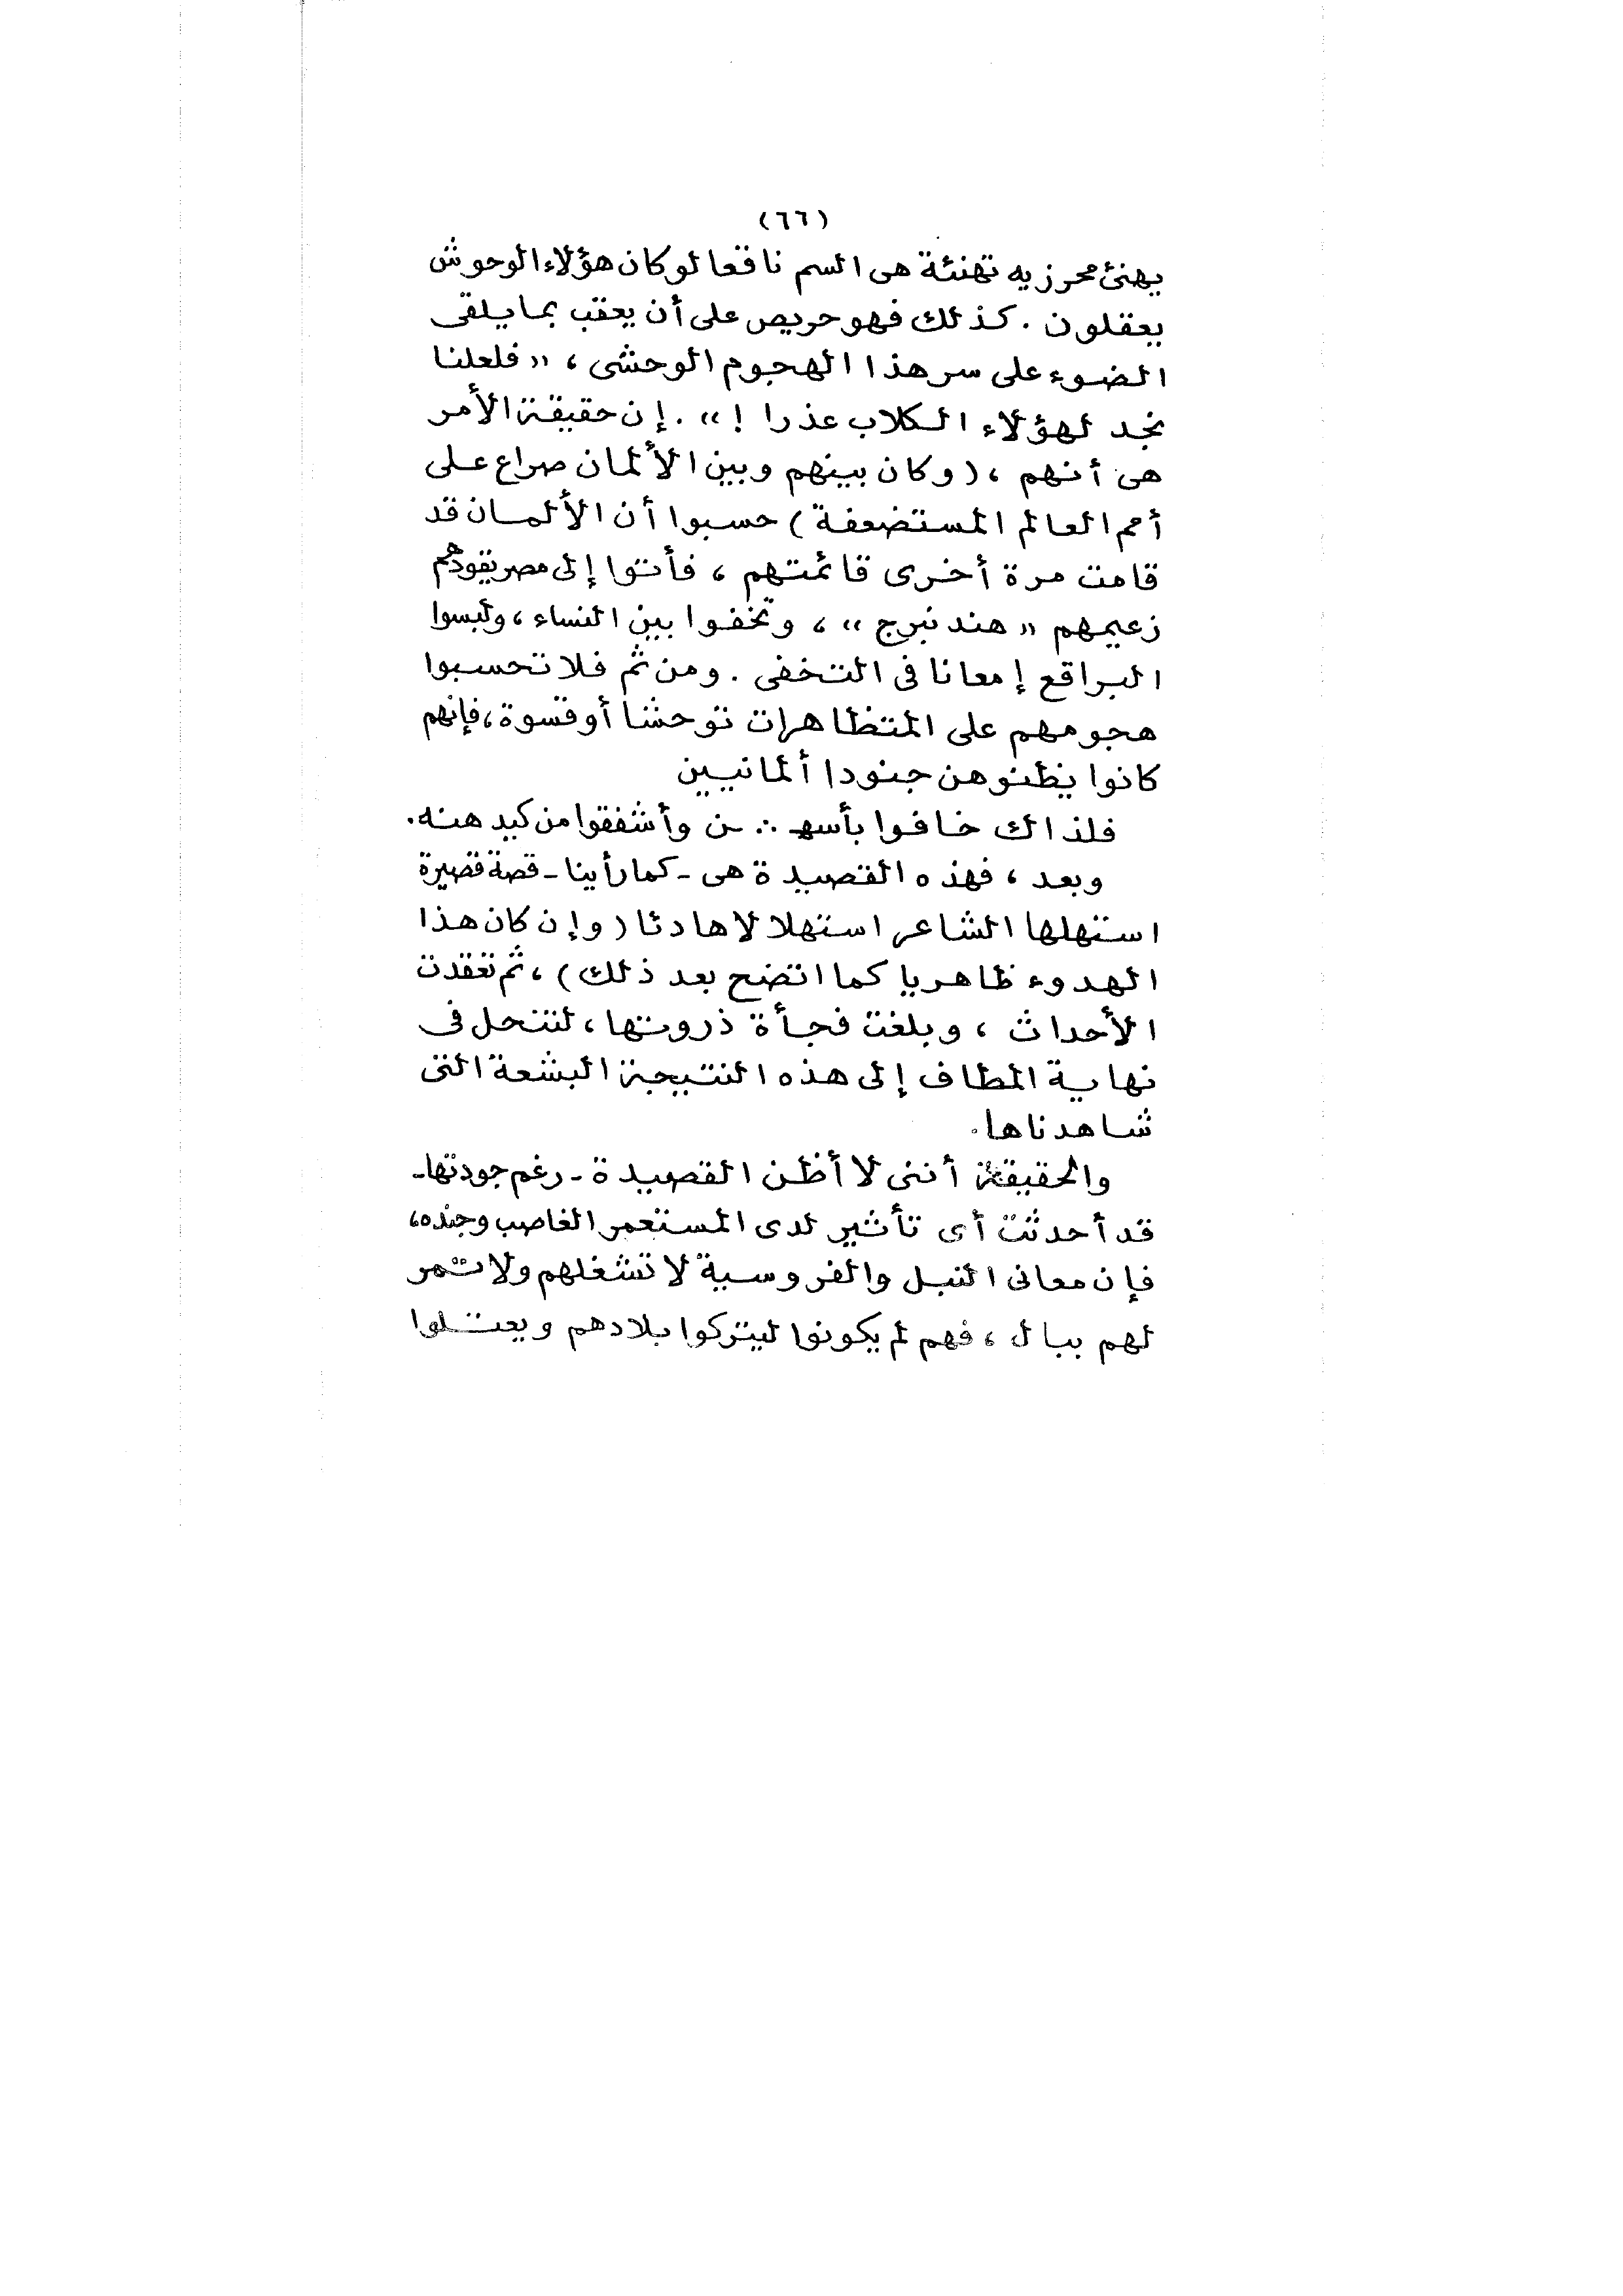 (٦٦)
يهنئ محرزيه تهنئة هى السم ناقعا لو كان هؤلاء الوحوش
يعقلون . كذلك فهو حريص على أن يعقب بما يلقى
الضوء على سر هذا الهجوم الوحشى ، « فلعلنا
نجد لهؤلاء الكلاب عذرا ! » . إن حقيقة الأمر
هى أنهم ، (وكان بينهم وبين الألمان صراع على
أمم العالم المستضعفة) حسبوا أن الألمان قد
قامت مرة أخرى قائمتهم ، فأتوا إلى مصر يقودهم
زعيمهم « هندنبرج » ، وتخفوا بين النساء ، ولبسوا
البراقع إمعانا فى التخفى . ومن ثم فلا تحسبوا
هجومهم على المتظاهرات توحشا أو قسوة ، فإنهم
كانوا يظنوهن جنودا ألمانيين
فلذاك خافوا بأسهـ ∴ ـن وأشفقوا من كيدهنه .
وبعد ، فهذه القصيدة هى - كما رأينا - قصة قصيرة
استهلها الشاعر استهلالا هادئا (وإن كان هذا
الهدوء ظاهريا كما اتضح بعد ذلك) ، ثم تعقدت
الأحداث ، وبلغت فجأة ذروتها ، لتنحل فى
نهاية المطاف إلى هذه النتيجة البشعة التى
شاهدناها .
والحقيقة أننى لا أظن القصيدة - رغم جودتها -
قد أحدثت أى تأثير لدى المستعمر الغاصب وجنده ،
فإن معانى النبل والفروسية لا تشغلهم ولا تمر
لهم ببال ، فهم لم يكونوا ليتركوا بلادهم ويعتلوا